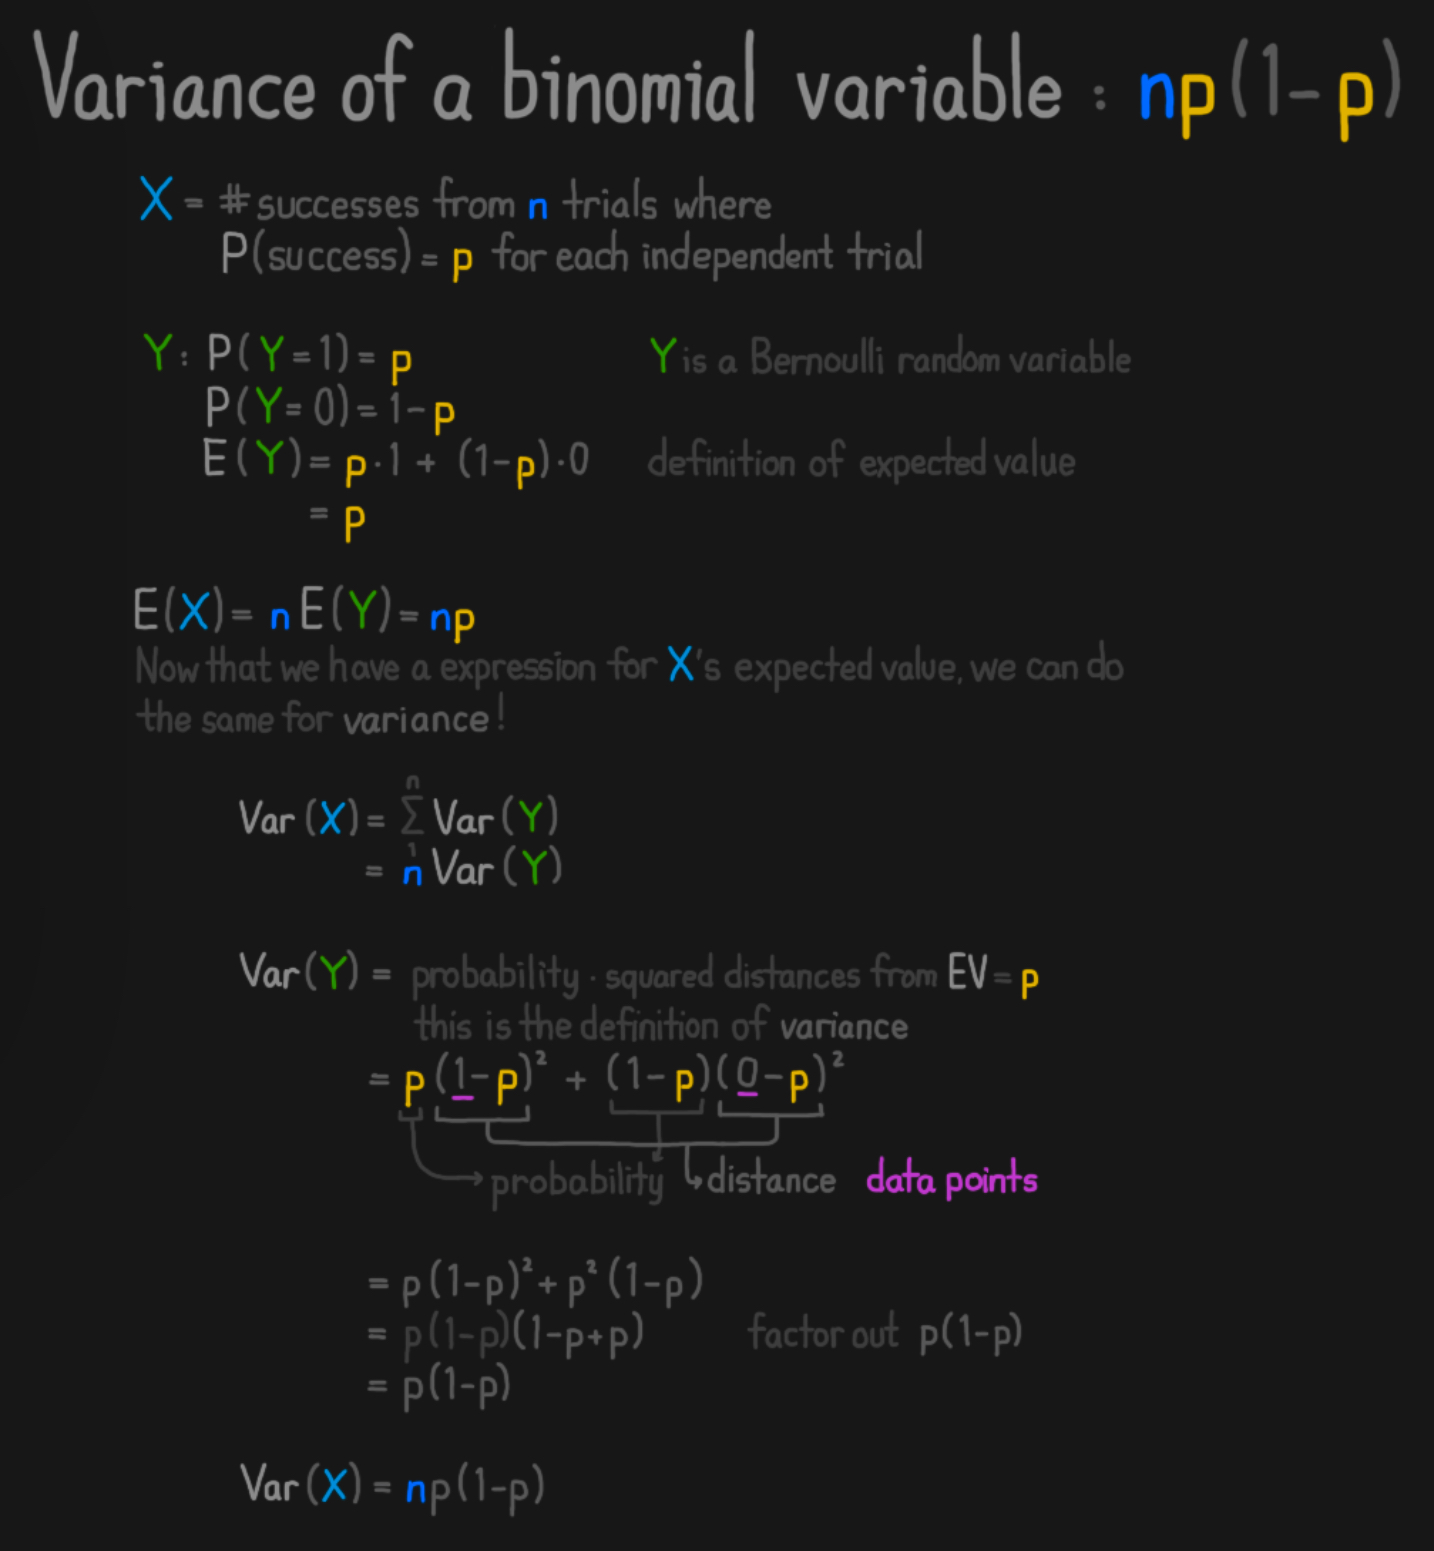 Variance of a binomial variable : np(1-p)
X = # successes from n trials where
P(success) = p for each independent trial
Y: P(Y=1) = p Y is a Bernoulli random variable
P(Y=0) = 1-p
E(Y) = p·1 + (1-p)·0 definition of expected value
= p
E(X) = nE(Y) = np
Now that we have a expression for X's expected value, we can do
the same for variance!
n
Var(X) = Σ Var(Y)
1
= n Var(Y)
Var(Y) = probability · squared distances from EV = p
this is the definition of variance
= p(1-p)² + (1-p)(0-p)²
probability distance data points
= p(1-p)² + p²(1-p)
= p(1-p)(1-p+p) factor out p(1-p)
= p(1-p)
Var(X) = np(1-p)